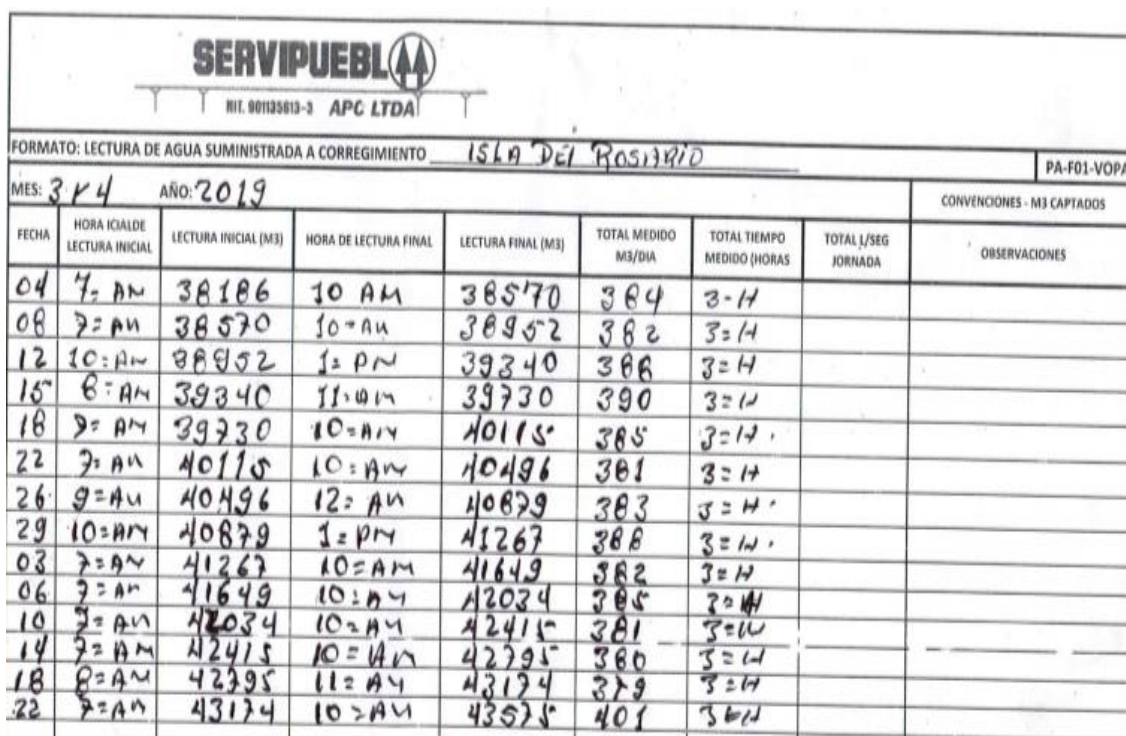 SERVIPUEBL
NIT. 901135613-3 APC LTDA
FORMATO: LECTURA DE AGUA SUMINISTRADA A CORREGIMIENTO ISLA DEL ROSARIO
PA-F01-VOPA
MES: 3 Y 4 AÑO: 2019
CONVENCIONES - M3 CAPTADOS
FECHA HORA ICIALDE LECTURA INICIAL LECTURA INICIAL (M3) HORA DE LECTURA FINAL LECTURA FINAL (M3) TOTAL MEDIDO M3/DIA TOTAL TIEMPO MEDIDO (HORAS TOTAL L/SEG JORNADA OBSERVACIONES
04 7= AM 38186 10 AM 38570 384 3-H
08 7= AM 38570 10= AM 38952 382 3=H
12 10= AM 38952 1= PM 39340 388 3=H
15 8= AM 39340 11= AM 39730 390 3=H
18 7= AM 39730 10= AM 40115 385 3=H
22 7= AM 40115 10= AM 40496 381 3=H
26 9= AM 40496 12= AM 40879 383 3=H
29 10= AM 40879 1= PM 41267 388 3=H
03 7= AM 41267 10= AM 41649 382 3=H
06 7= AM 41649 10= AM 42034 385 3=H
10 7= AM 42034 10= AM 42415 381 3=H
14 7= AM 42415 10= AM 42795 380 3=H
18 8= AM 42795 11= AM 43174 379 3=H
22 7= AM 43174 10= AM 43575 401 3=H